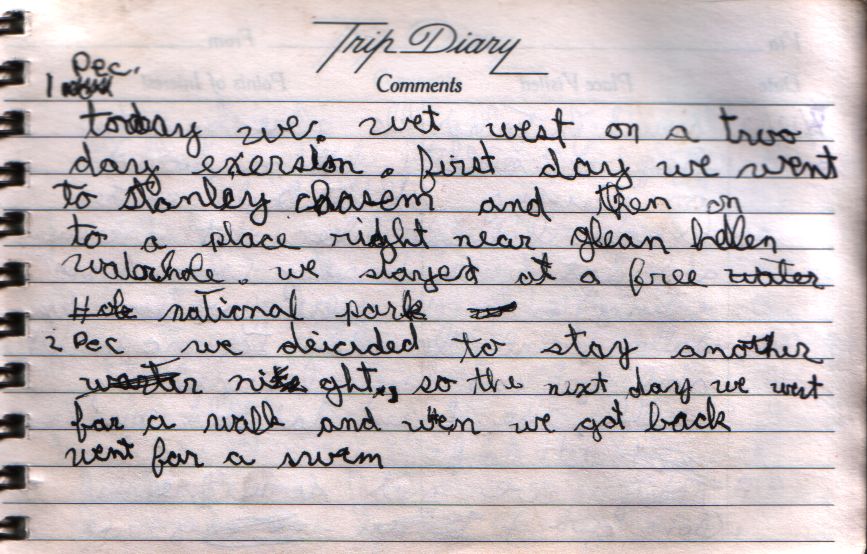 Trip Diary
Comments
Dec.
1
today we. wet west on a two
day exersion. first day we went
to stanley chasem and then on
to a place right near glean helen
walorhole. we stayed at a free water
national park
2 Dec we deicided to stay another
night, so the next day we wet
for a walk and wen we got back
went for a swem